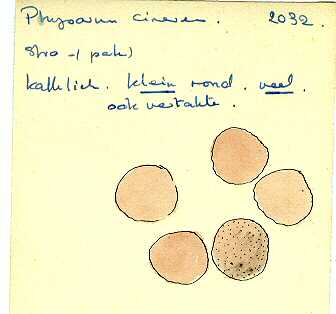 Physarum cinereum. 2032.
stro -( pak)
kalklich. klein rond. veel.
ook vertakte.